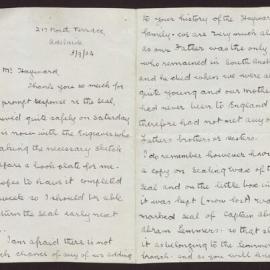 217 North Terrace,
Adelaide
Mr Hayward,
Thank you so much for
prompt response re the seal,
arrived quite safely on Saturday
is now with the Engravers who
making the necessary sketch
prepare a book plate for me.
hopes to have it completed
week so I should be able
return the seal early next
I am afraid there is not
much chance of any of us adding
to your history of the Hayward
family - we are very much alone
as our Father was the only
who remained in South Aust
and he died when we were all
quite young and our mother
had never been to England
therefore had not met any of
Father's brothers or sisters.
I do remember however having
a copy on Sealing wax of the
Seal and on the little box in
it was kept (now lost) was
marked seal of Captain
Abram Summers: so that
it as belonging to the Summers
branch - and as you will